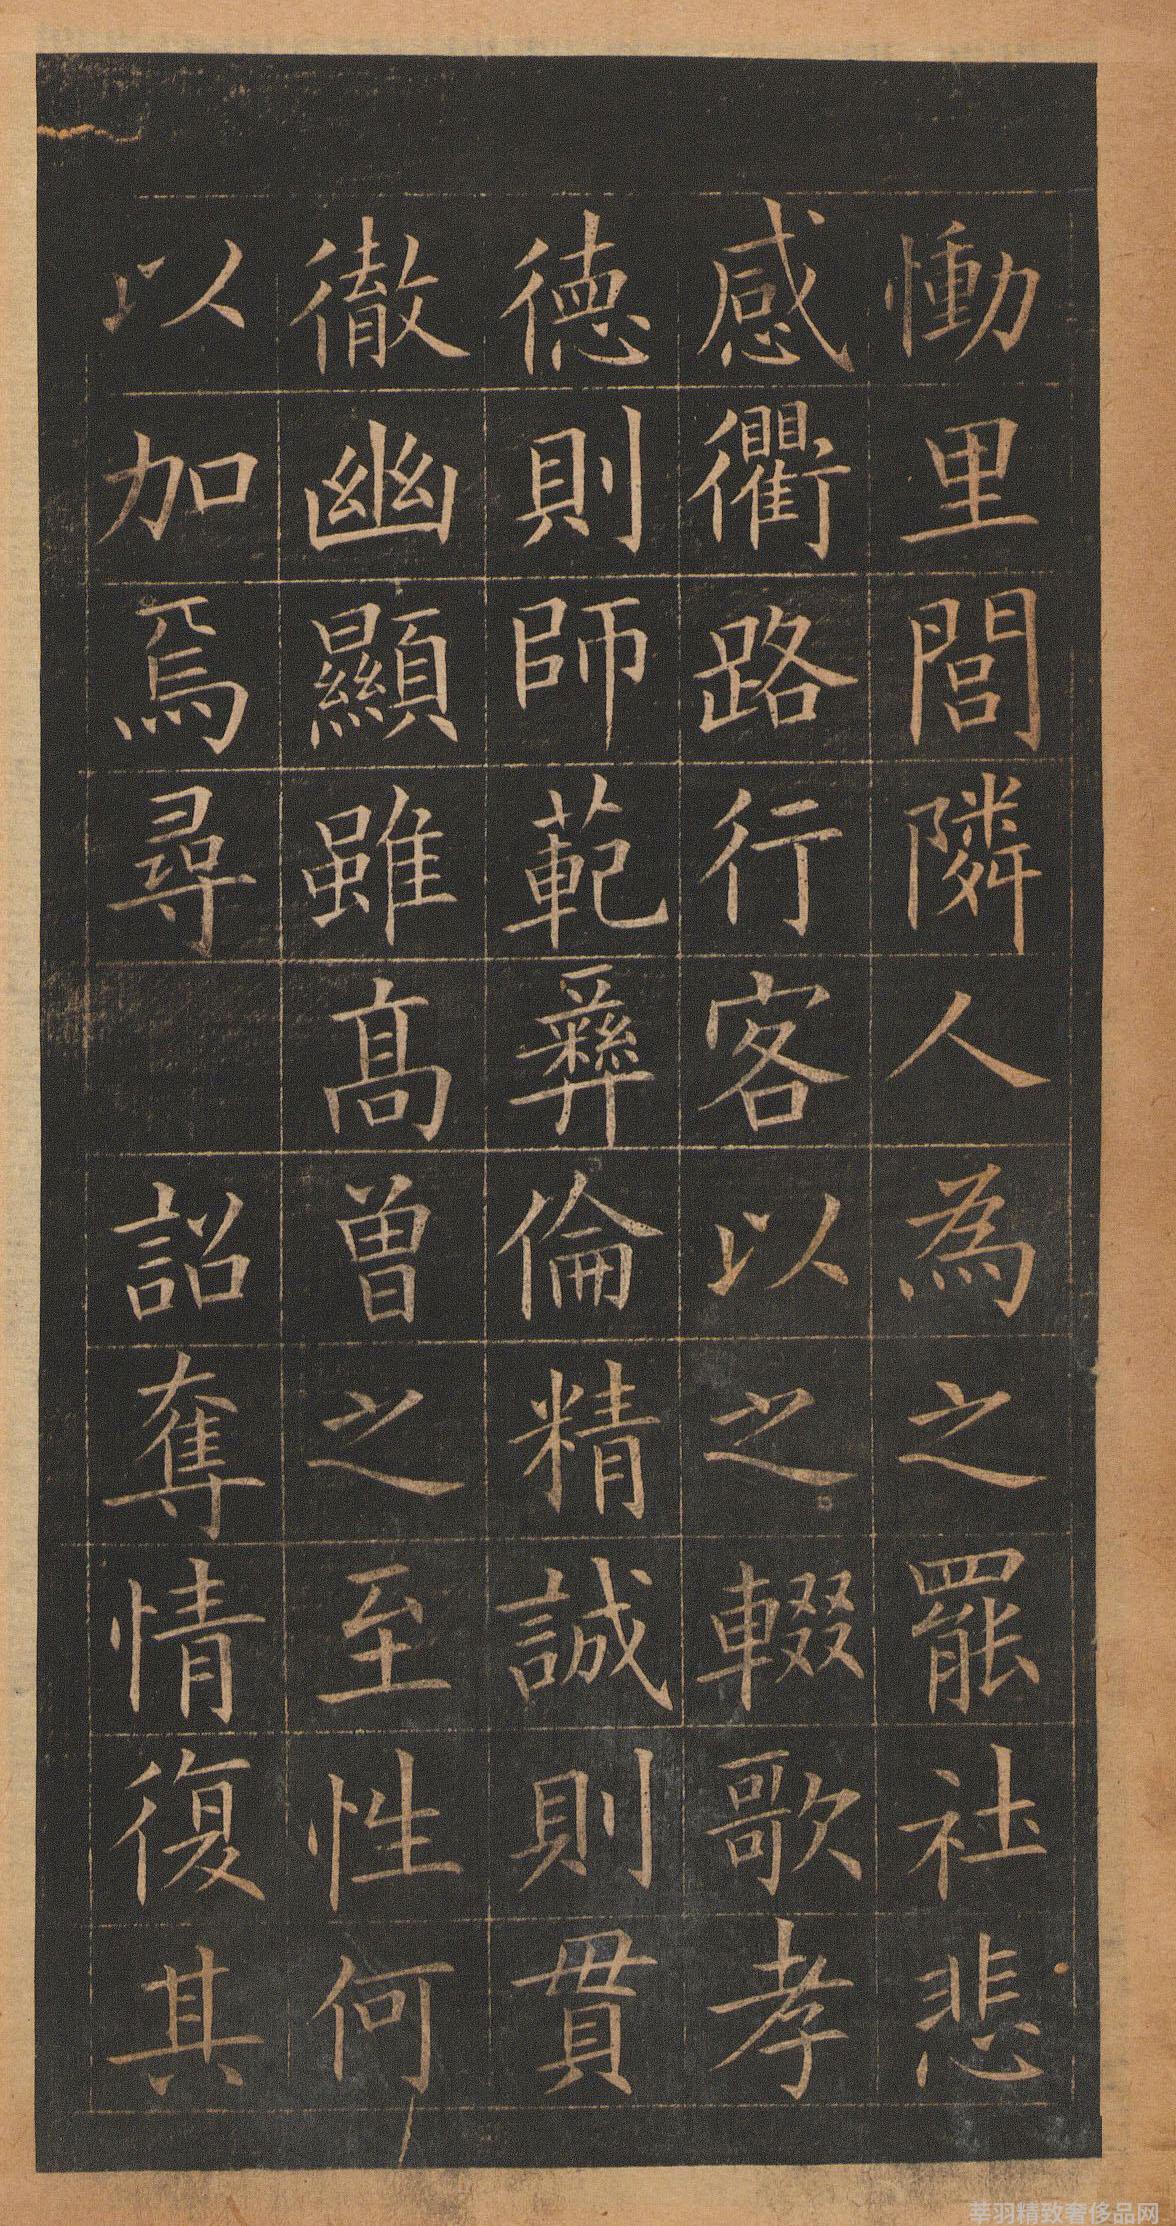 慟里閭隣人為之罷社悲
感衢路行客以之輟歌孝
德則師範彝倫精誠則貫
徹幽顯雖高曾之至性何
以加焉尋 詔奪情復其
莘羽精致奢侈品网